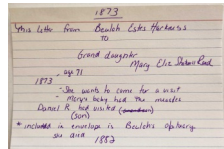 1873
This letter from Beulah Estes Harkness
TO
Grand daughter
Mary Eliz
age 71
1873 - She wants to come for a visit
- Mary's baby had the measles
Daniel R had visited
(son)
* included in envelope is Beulah's obituary
she died
1882